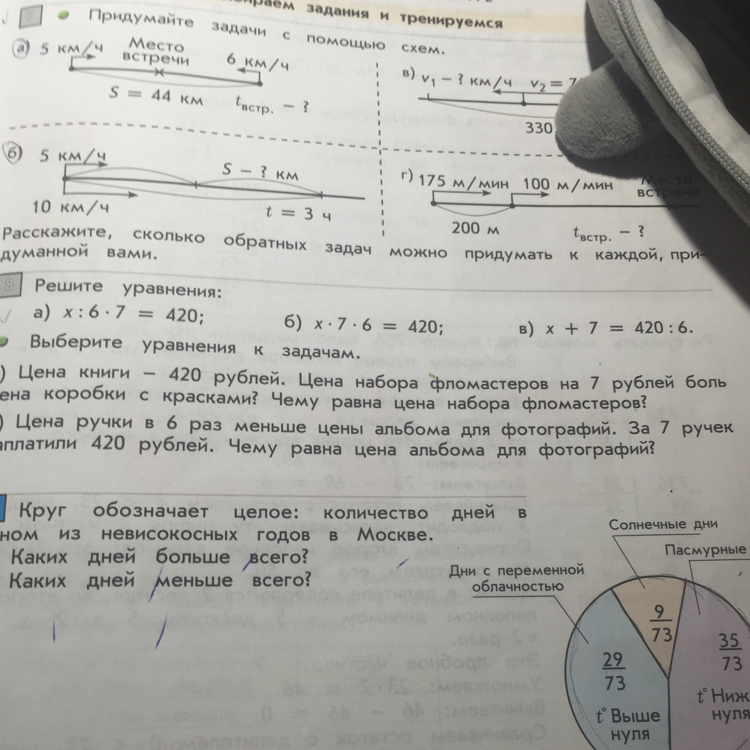 задания и тренируемся
Придумайте задачи с помощью схем.
а) 5 км/ч Место встречи 6 км/ч
S = 44 км tвстр. – ?
в) v₁ – ? км/ч v₂ = 7
330
б) 5 км/ч
S – ? км
10 км/ч
t = 3 ч
г) 175 м/мин 100 м/мин Место встречи
200 м tвстр. – ?
Расскажите, сколько обратных задач можно придумать к каждой, при-
думанной вами.
8 Решите уравнения:
а) x : 6 · 7 = 420; б) x · 7 · 6 = 420; в) x + 7 = 420 : 6.
Выберите уравнения к задачам.
) Цена книги – 420 рублей. Цена набора фломастеров на 7 рублей боль
ена коробки с красками? Чему равна цена набора фломастеров?
) Цена ручки в 6 раз меньше цены альбома для фотографий. За 7 ручек
аплатили 420 рублей. Чему равна цена альбома для фотографий?
Круг обозначает целое: количество дней в
ном из невисокосных годов в Москве.
Каких дней больше всего?
Каких дней меньше всего?
Солнечные дни
Пасмурные
Дни с переменной
облачностью
9/73
29/73
35/73
t° Выше
нуля
t° Ниж
нуля